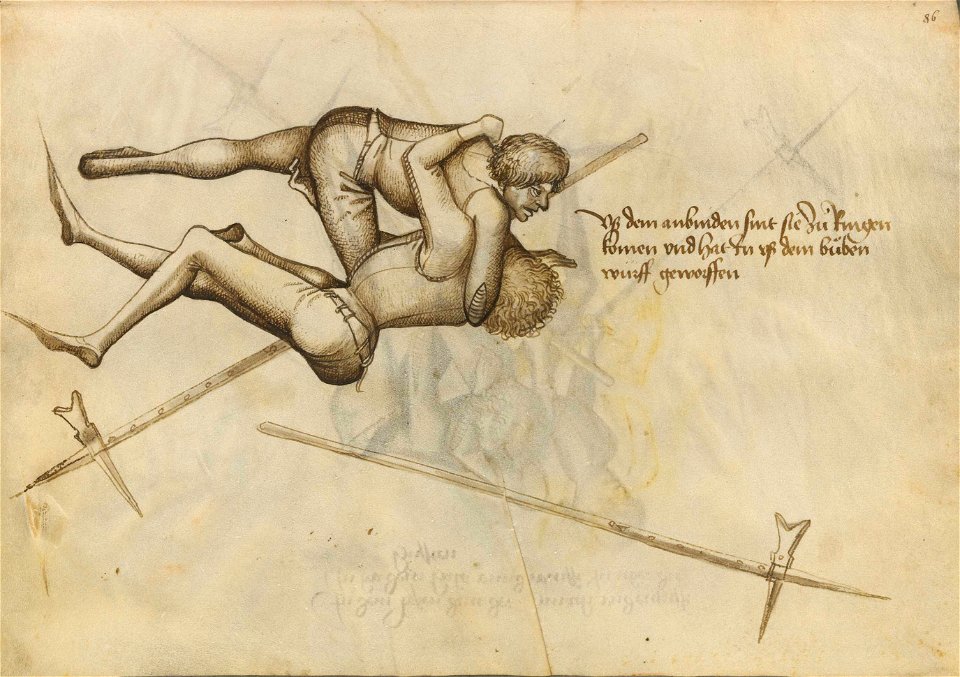 86
Vß dem anbinden sint sie zů Ringen
komen vnd hat In vß dem bůben
wurff geworffen